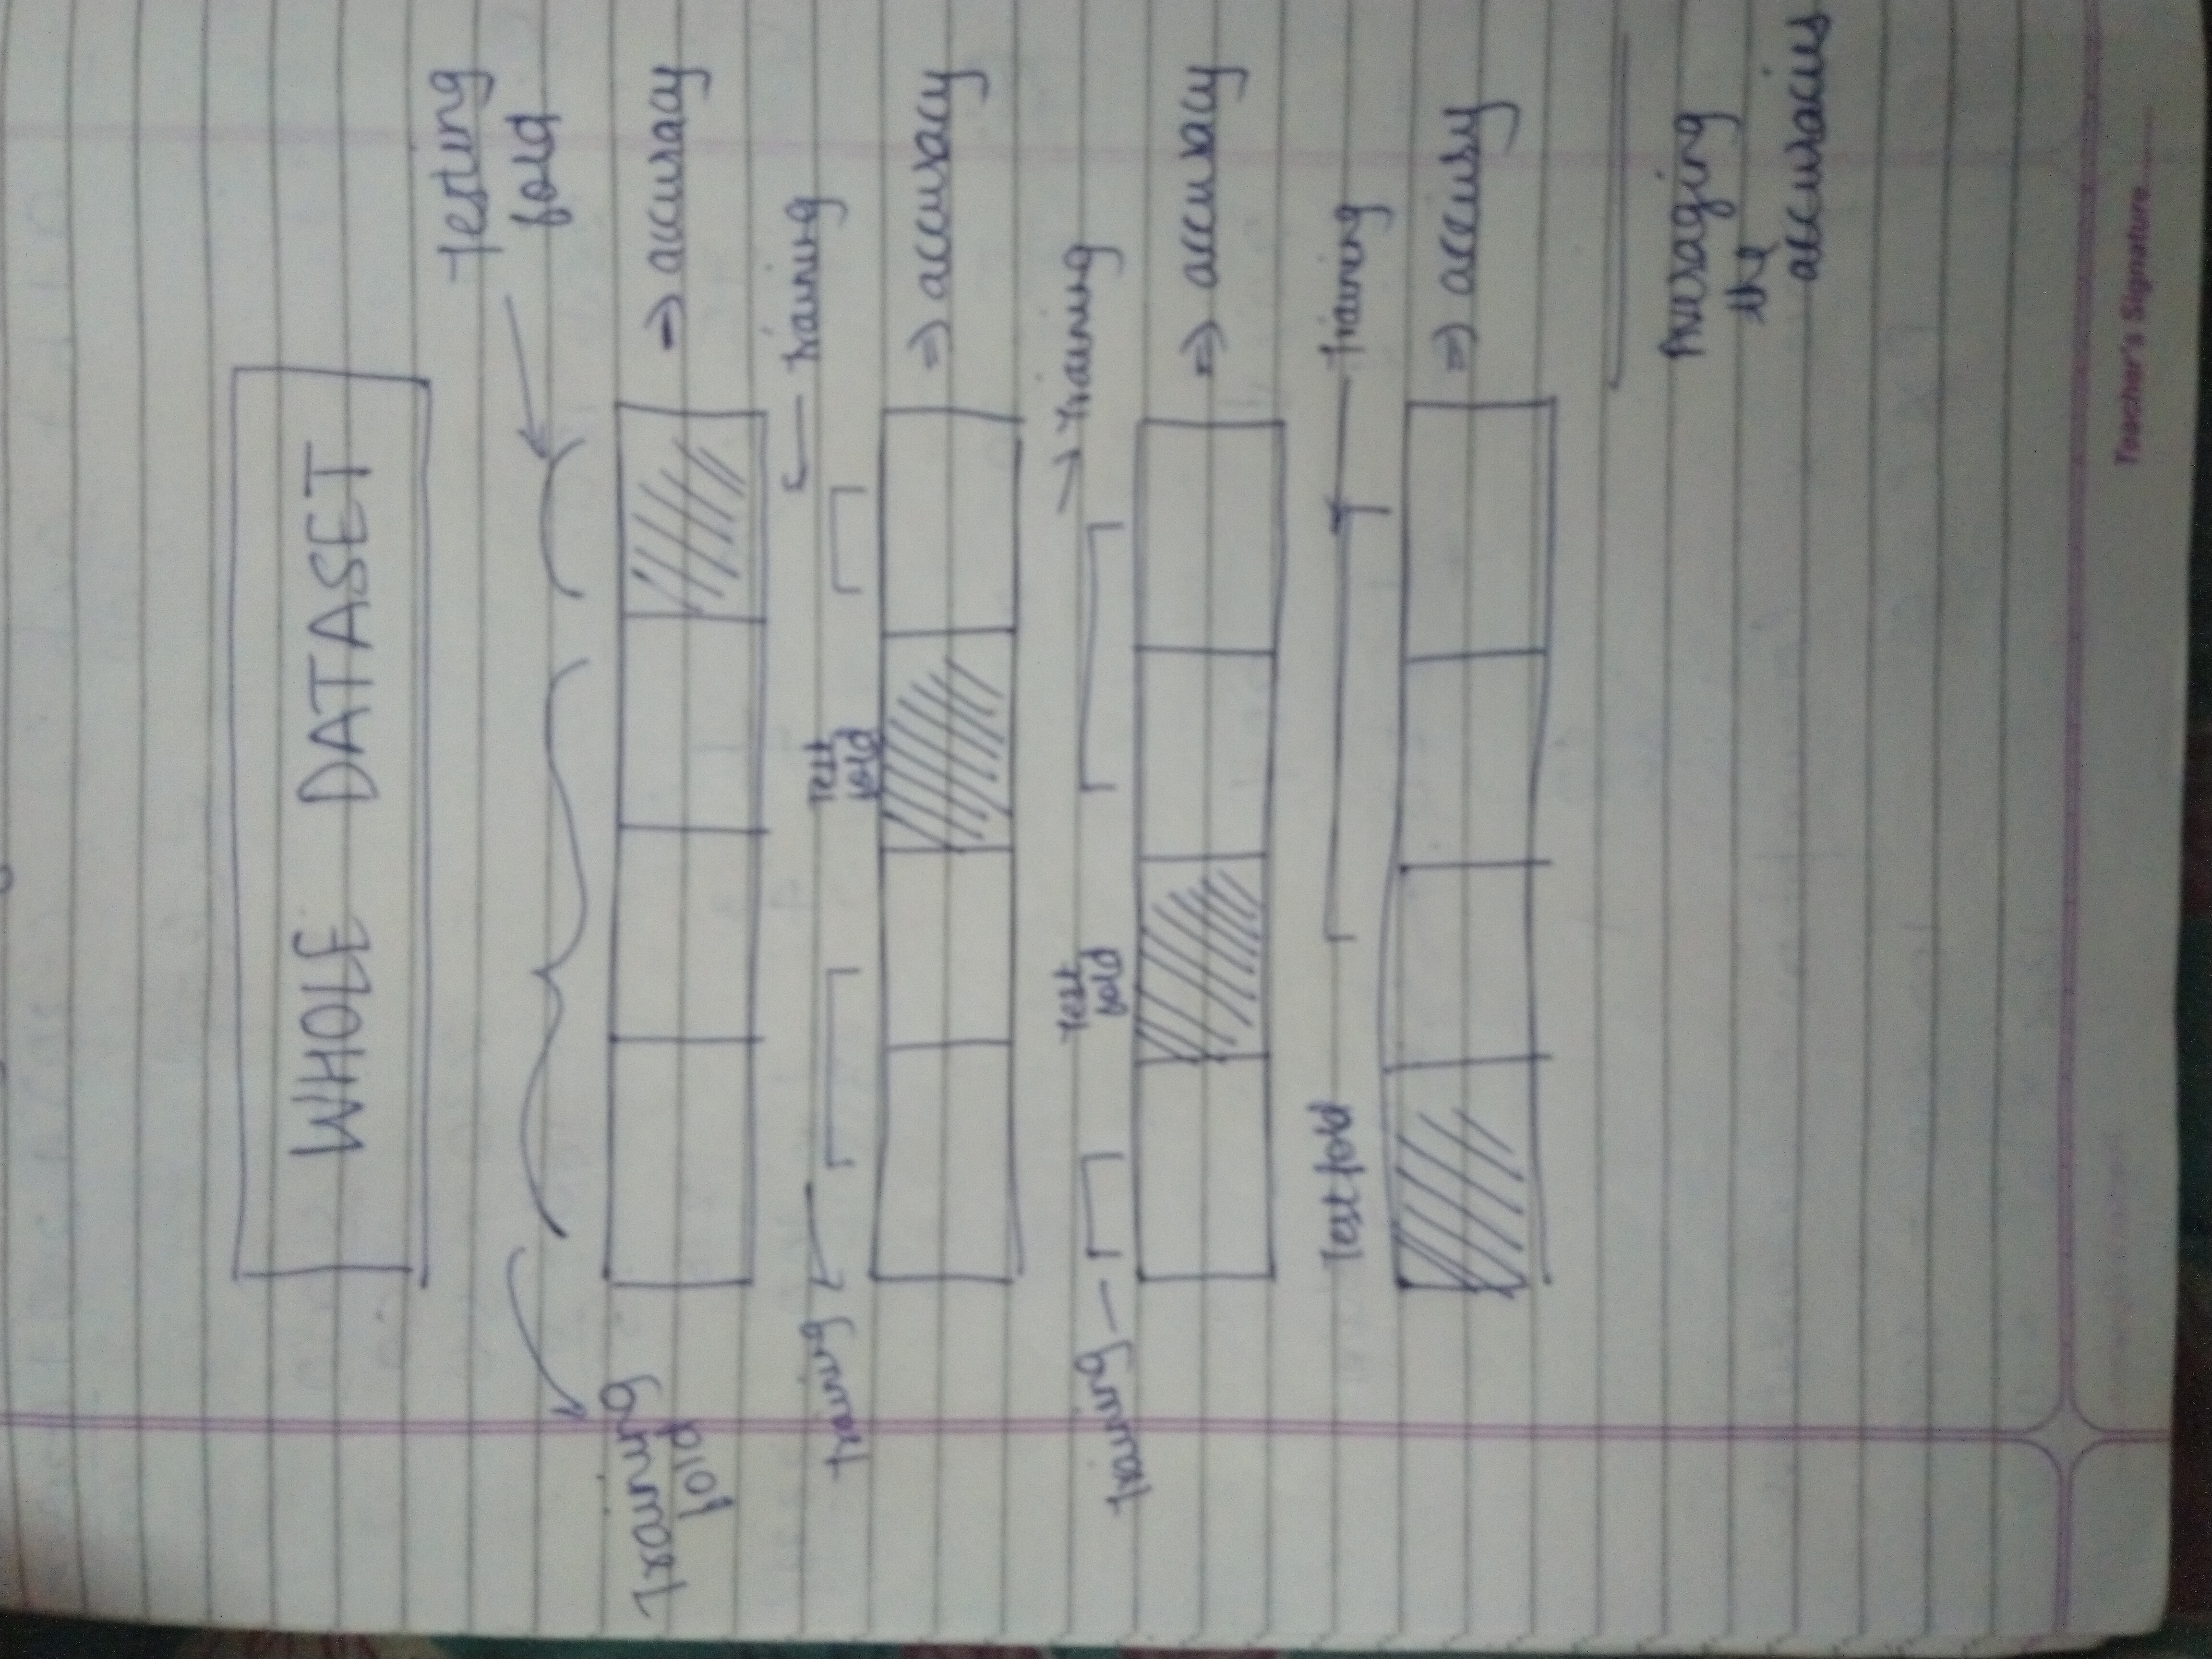 WHOLE DATASET
Testing
fold
Training
fold
=) accuracy
Training
Test
fold
Training
=) accuracy
Training
Test
fold
Training
=) accuracy
Test fold
Training
=) accursy
Averaging
the
accuracies
Teacher's Signature